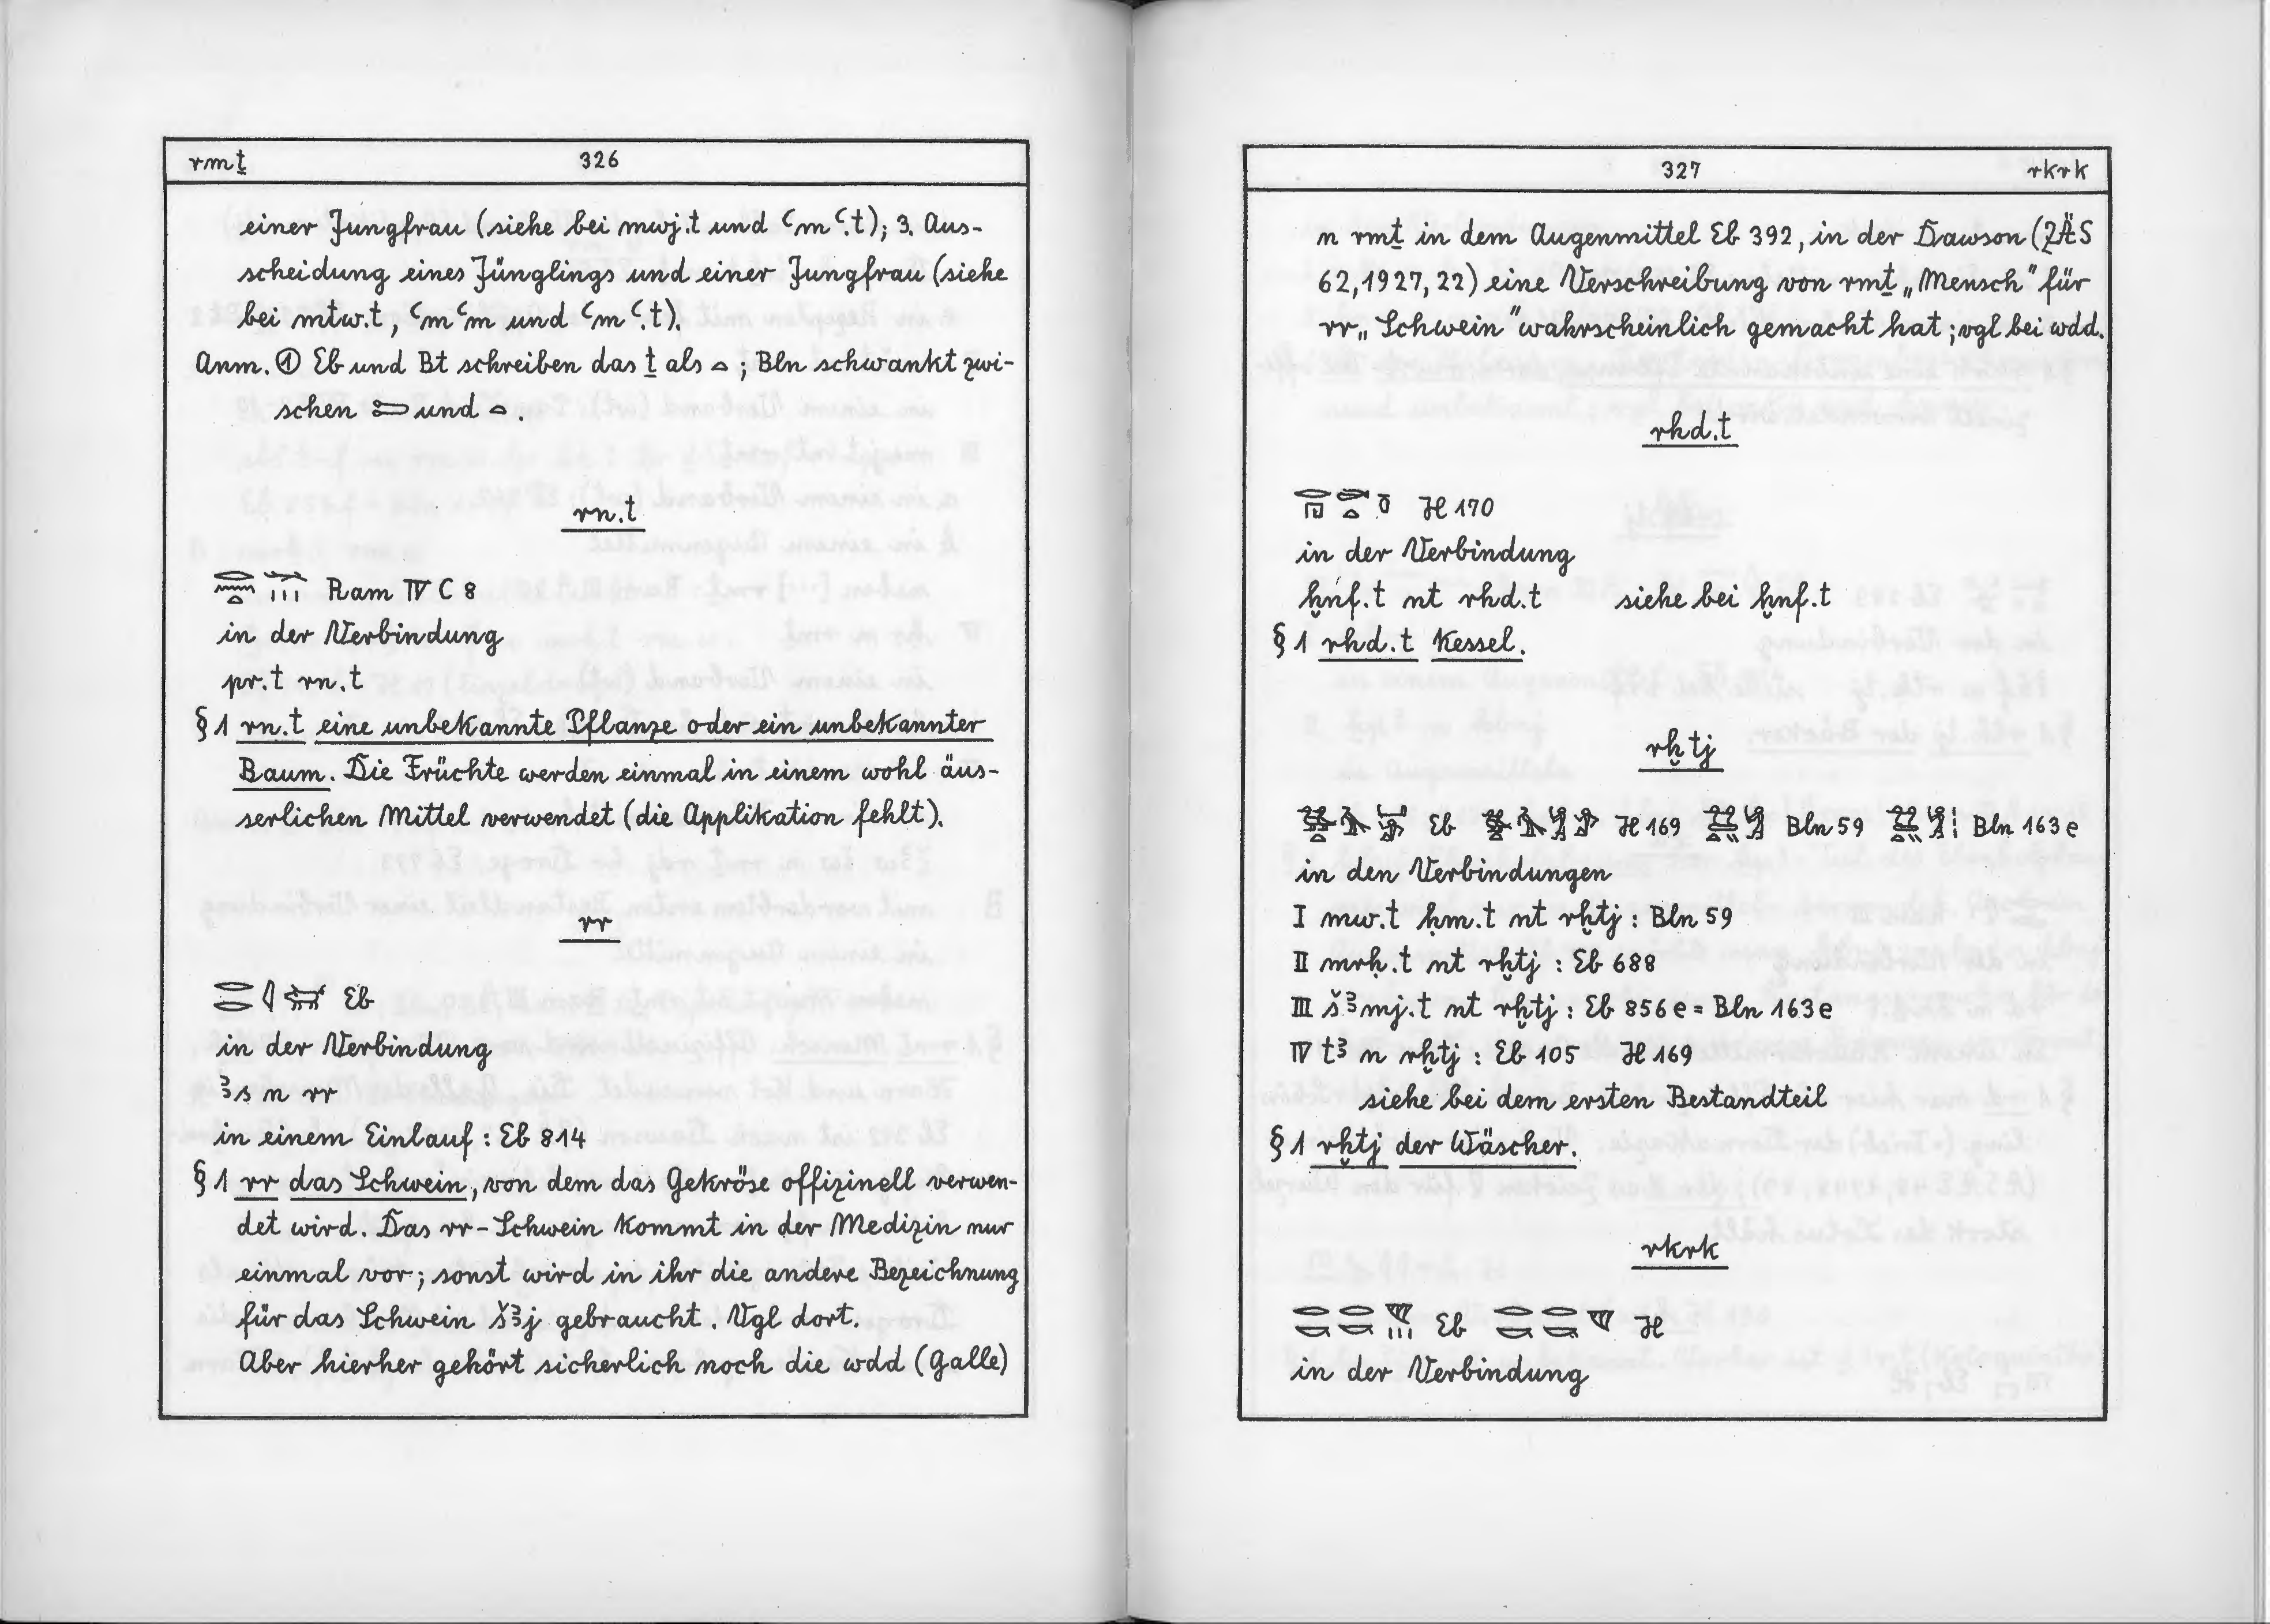 rmṯ 326
einer Jungfrau (siehe bei mwj.t und ꜥmꜥ.t); 3. Aus-
scheidung eines Jünglings und einer Jungfrau (siehe
bei mtw.t, ꜥmꜥm und ꜥmꜥ.t).
Anm. ① Eb und Bt schreiben das ṯ als 𓏏; Bln schwankt zwi-
schen 𓍿 und 𓏏.
rn.t
𓂋𓈖𓏏𓆱𓏥 Ram IV C 8
in der Verbindung
pr.t rn.t
§ 1 rn.t eine unbekannte Pflanze oder ein unbekannter
Baum. Die Früchte werden einmal in einem wohl äus-
serlichen Mittel verwendet (die Applikation fehlt).
rr
Eb
in der Verbindung
ꜣs n rr
in einem Einlauf: Eb 814
§ 1 rr das Schwein, von dem das Gekröse offizinell verwen-
det wird. Das rr-Schwein kommt in der Medizin nur
einmal vor; sonst wird in ihr die andere Bezeichnung
für das Schwein šꜣj gebraucht. Vgl dort.
Aber hierher gehört sicherlich noch die wdd (Galle)
327 rkrk
n rmṯ in dem Augenmittel Eb 392, in der Dawson (ZÄS
62,1927,22) eine Verschreibung von rmṯ „Mensch" für
rr „Schwein" wahrscheinlich gemacht hat; vgl bei wdd.
rhd.t
H 170
in der Verbindung
ḫnf.t nt rhd.t siehe bei ḫnf.t
§ 1 rhd.t Kessel.
rḫtj
Eb H 169 Bln 59 Bln 163e
in den Verbindungen
I mw.t ḥm.t nt rḫtj: Bln 59
II mrḥ.t nt rḫtj: Eb 688
III šꜣmj.t nt rḫtj: Eb 856e = Bln 163e
IV tꜣ n rḫtj: Eb 105 H 169
siehe bei dem ersten Bestandteil
§ 1 rḫtj der Wäscher.
rkrk
Eb H
in der Verbindung